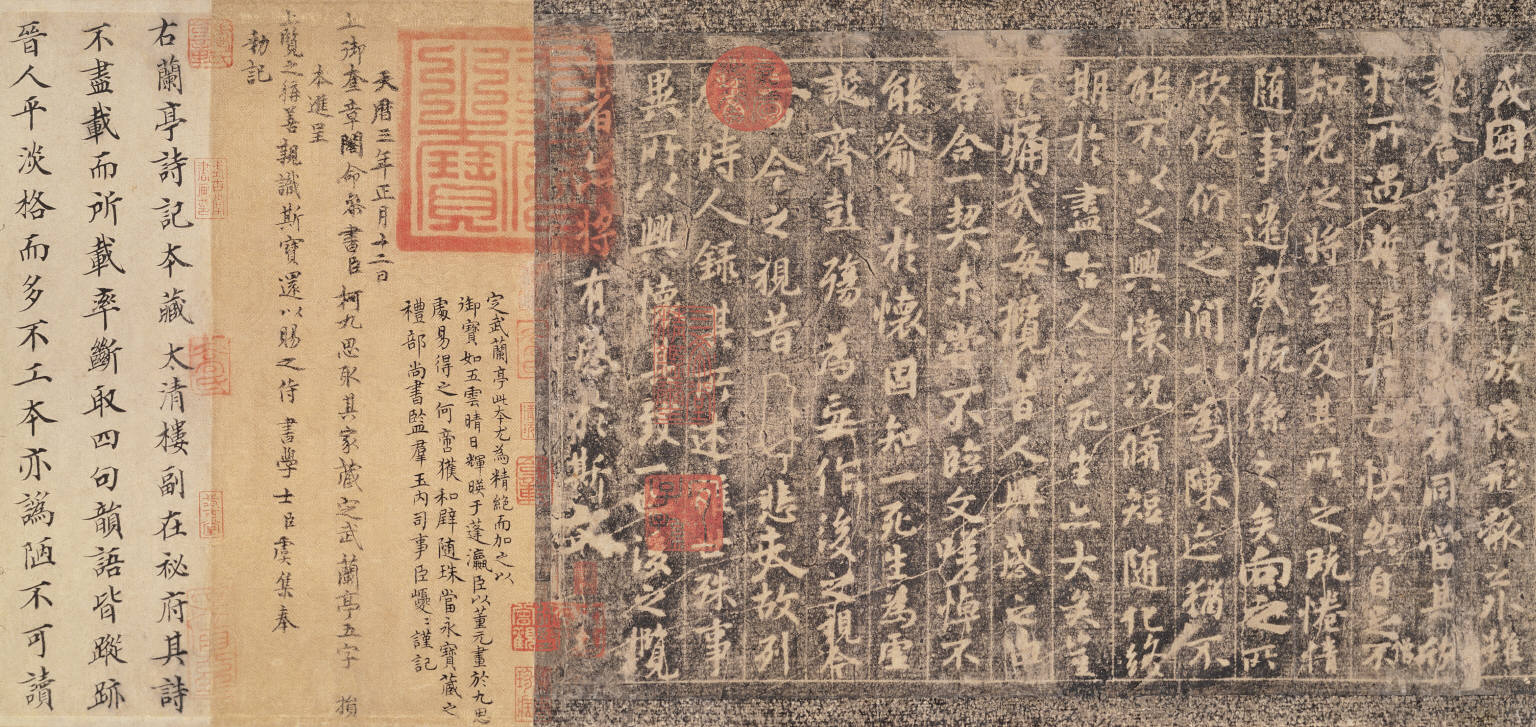 或因寄所託放浪形骸之外雖
趣舍萬殊靜躁不同當其欣
於所遇暫得於己快然自足不
知老之將至及其所之既惓情
隨事遷感慨係之矣向之所
欣俛仰之閒以為陳迹猶不
能不以之興懷況脩短隨化終
期於盡古人云死生亦大矣豈
不痛哉每攬昔人興感之由
若合一契未嘗不臨文嗟悼不
能喻之於懷固知一死生為虛
誕齊彭殤為妄作後之視今
由今之視昔悲夫故列
時人錄其所述雖世殊事
異所以興懷其致一也後之攬
者亦將有感於斯文
定武蘭亭此本尤為精絕而加之以
御寶如五雲晴日輝暎于蓬瀛臣以董元畫於九思
處易得之何啻獲和璧随珠當永寶藏之
禮部尚書監羣玉內司事臣巙〻謹記
天曆三年正月十二日
上御奎章閣命參書臣柯九思取其家藏定武蘭亭五字損
本進呈
上覽之稱善親識斯寶還以賜之侍書學士臣虞集奉
勅記
右蘭亭詩記本藏太清樓副在祕府其詩
不盡載而所載率斷取四句韻語皆蹤跡
晉人平淡格而多不工本亦譌陋不可讀